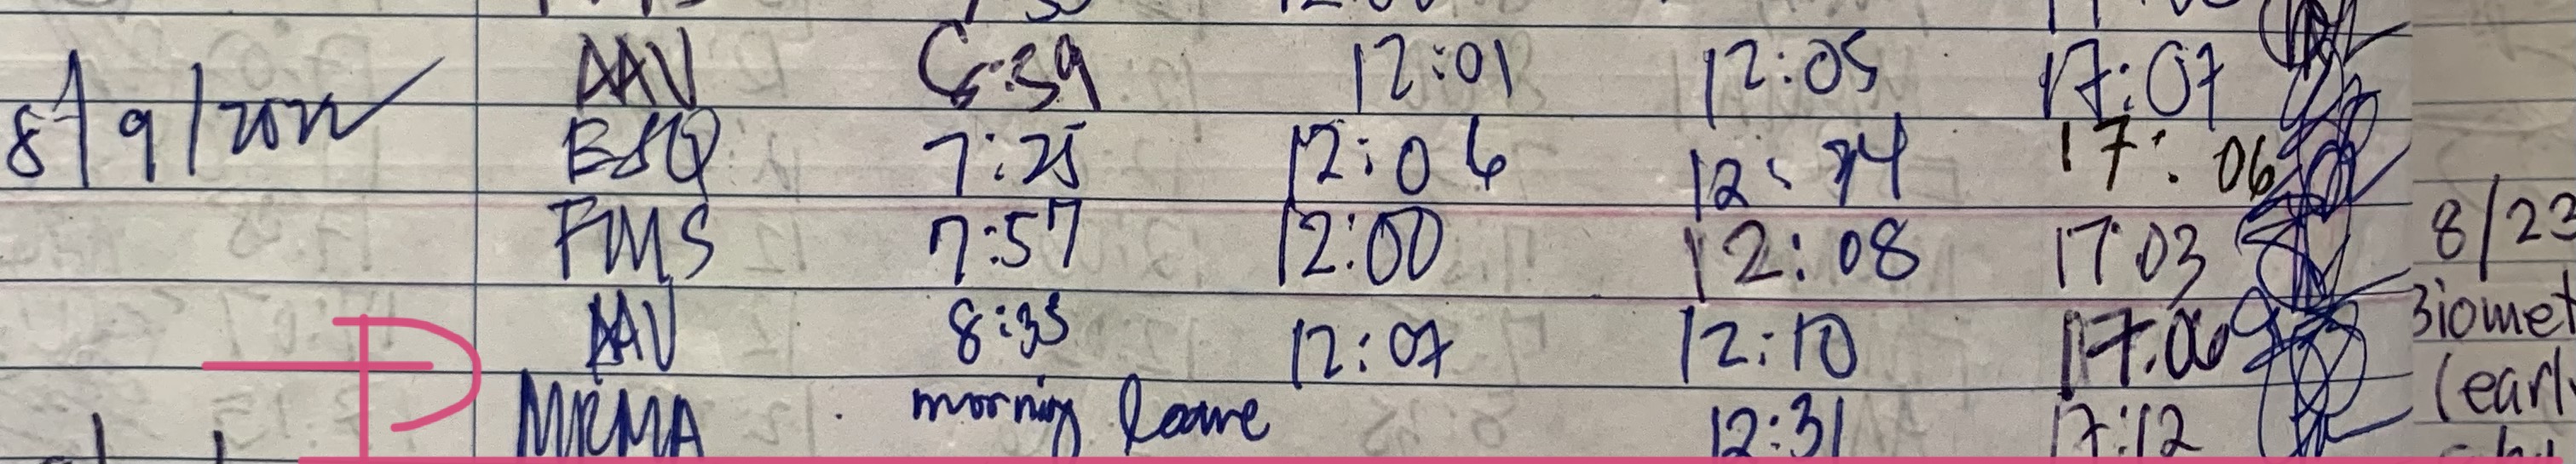 AAV 6:59 12:01 12:05 17:07
8/9/2022 ESQ 7:25 12:06 12: 17:06
FMS 7:57 12:00 12:08 17:03 8/23
AAV 8:35 12:07 12:10 17:06 Biomet
MRMA morning leave 12:31 17:12 (early